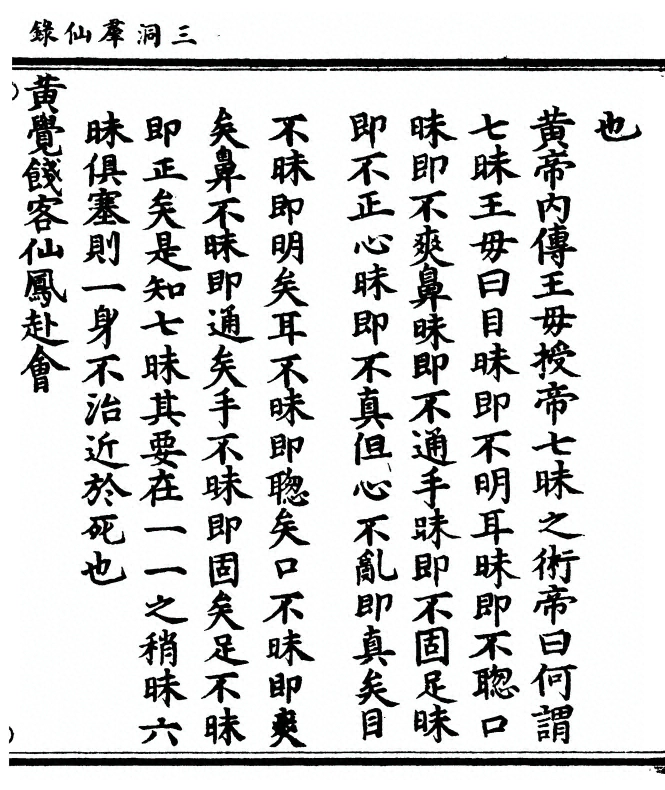 三洞羣仙錄
也
黃帝內傳王毋授帝七昧之術帝曰何謂
七昧王毋曰目昧即不明耳昧即不聦口
昧即不爽鼻昧即不通手昧即不固足昧
即不正心昧即不真但心不亂即真矣目
不昧即明矣耳不昧即聦矣口不昧即爽
矣鼻不昧即通矣手不昧即固矣足不昧
即正矣是知七昧其要在一一之稍昧六
昧俱塞則一身不治近於死也
黃覺餞客仙鳳赴會